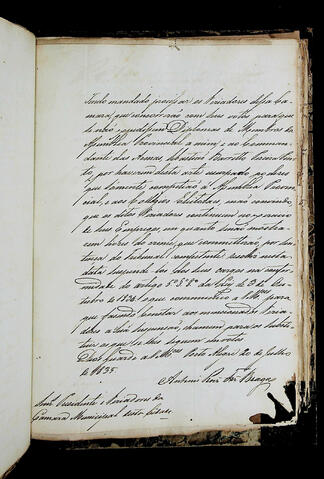 Tendo mandado processar os Vereadores dessa Ca-
mara, que concorrerão com seus votos para que
se não expedissem Diplomas de Membros da
Assemblea Provincial a mim, e ao Comman-
dante das Armas, Sebastião Barretto Pereira Pin-
to, por haverem desta arte usurpado poderes
que somente competião á Assemblea Provin-
cial, e aos Collegios Eleitoraes, não convindo
que os ditos Vereadores continuem no exercicio
de seus Empregos, em quanto senão mostra-
rem livres do crime, que commetterão, por sen-
tença do Tribunal competente resolvi nesta
data suspende-los dos seus cargos na confor-
midade do artigo 5º § 8º da Lei de 3 de Ou-
tubro de 1834: o que communico a VMces para
que fazendo constar aos mencionados Verea-
dores a sua suspensão, chamem para os substi-
tuir os que se lhes seguem em votos
Deos Guarde a VMces Porto Alegre 20 de Julho
de 1835.
Antonio Roiz Fer Braga
Snres Presidente e Vereadores da
Camara Municipal desta Cidade